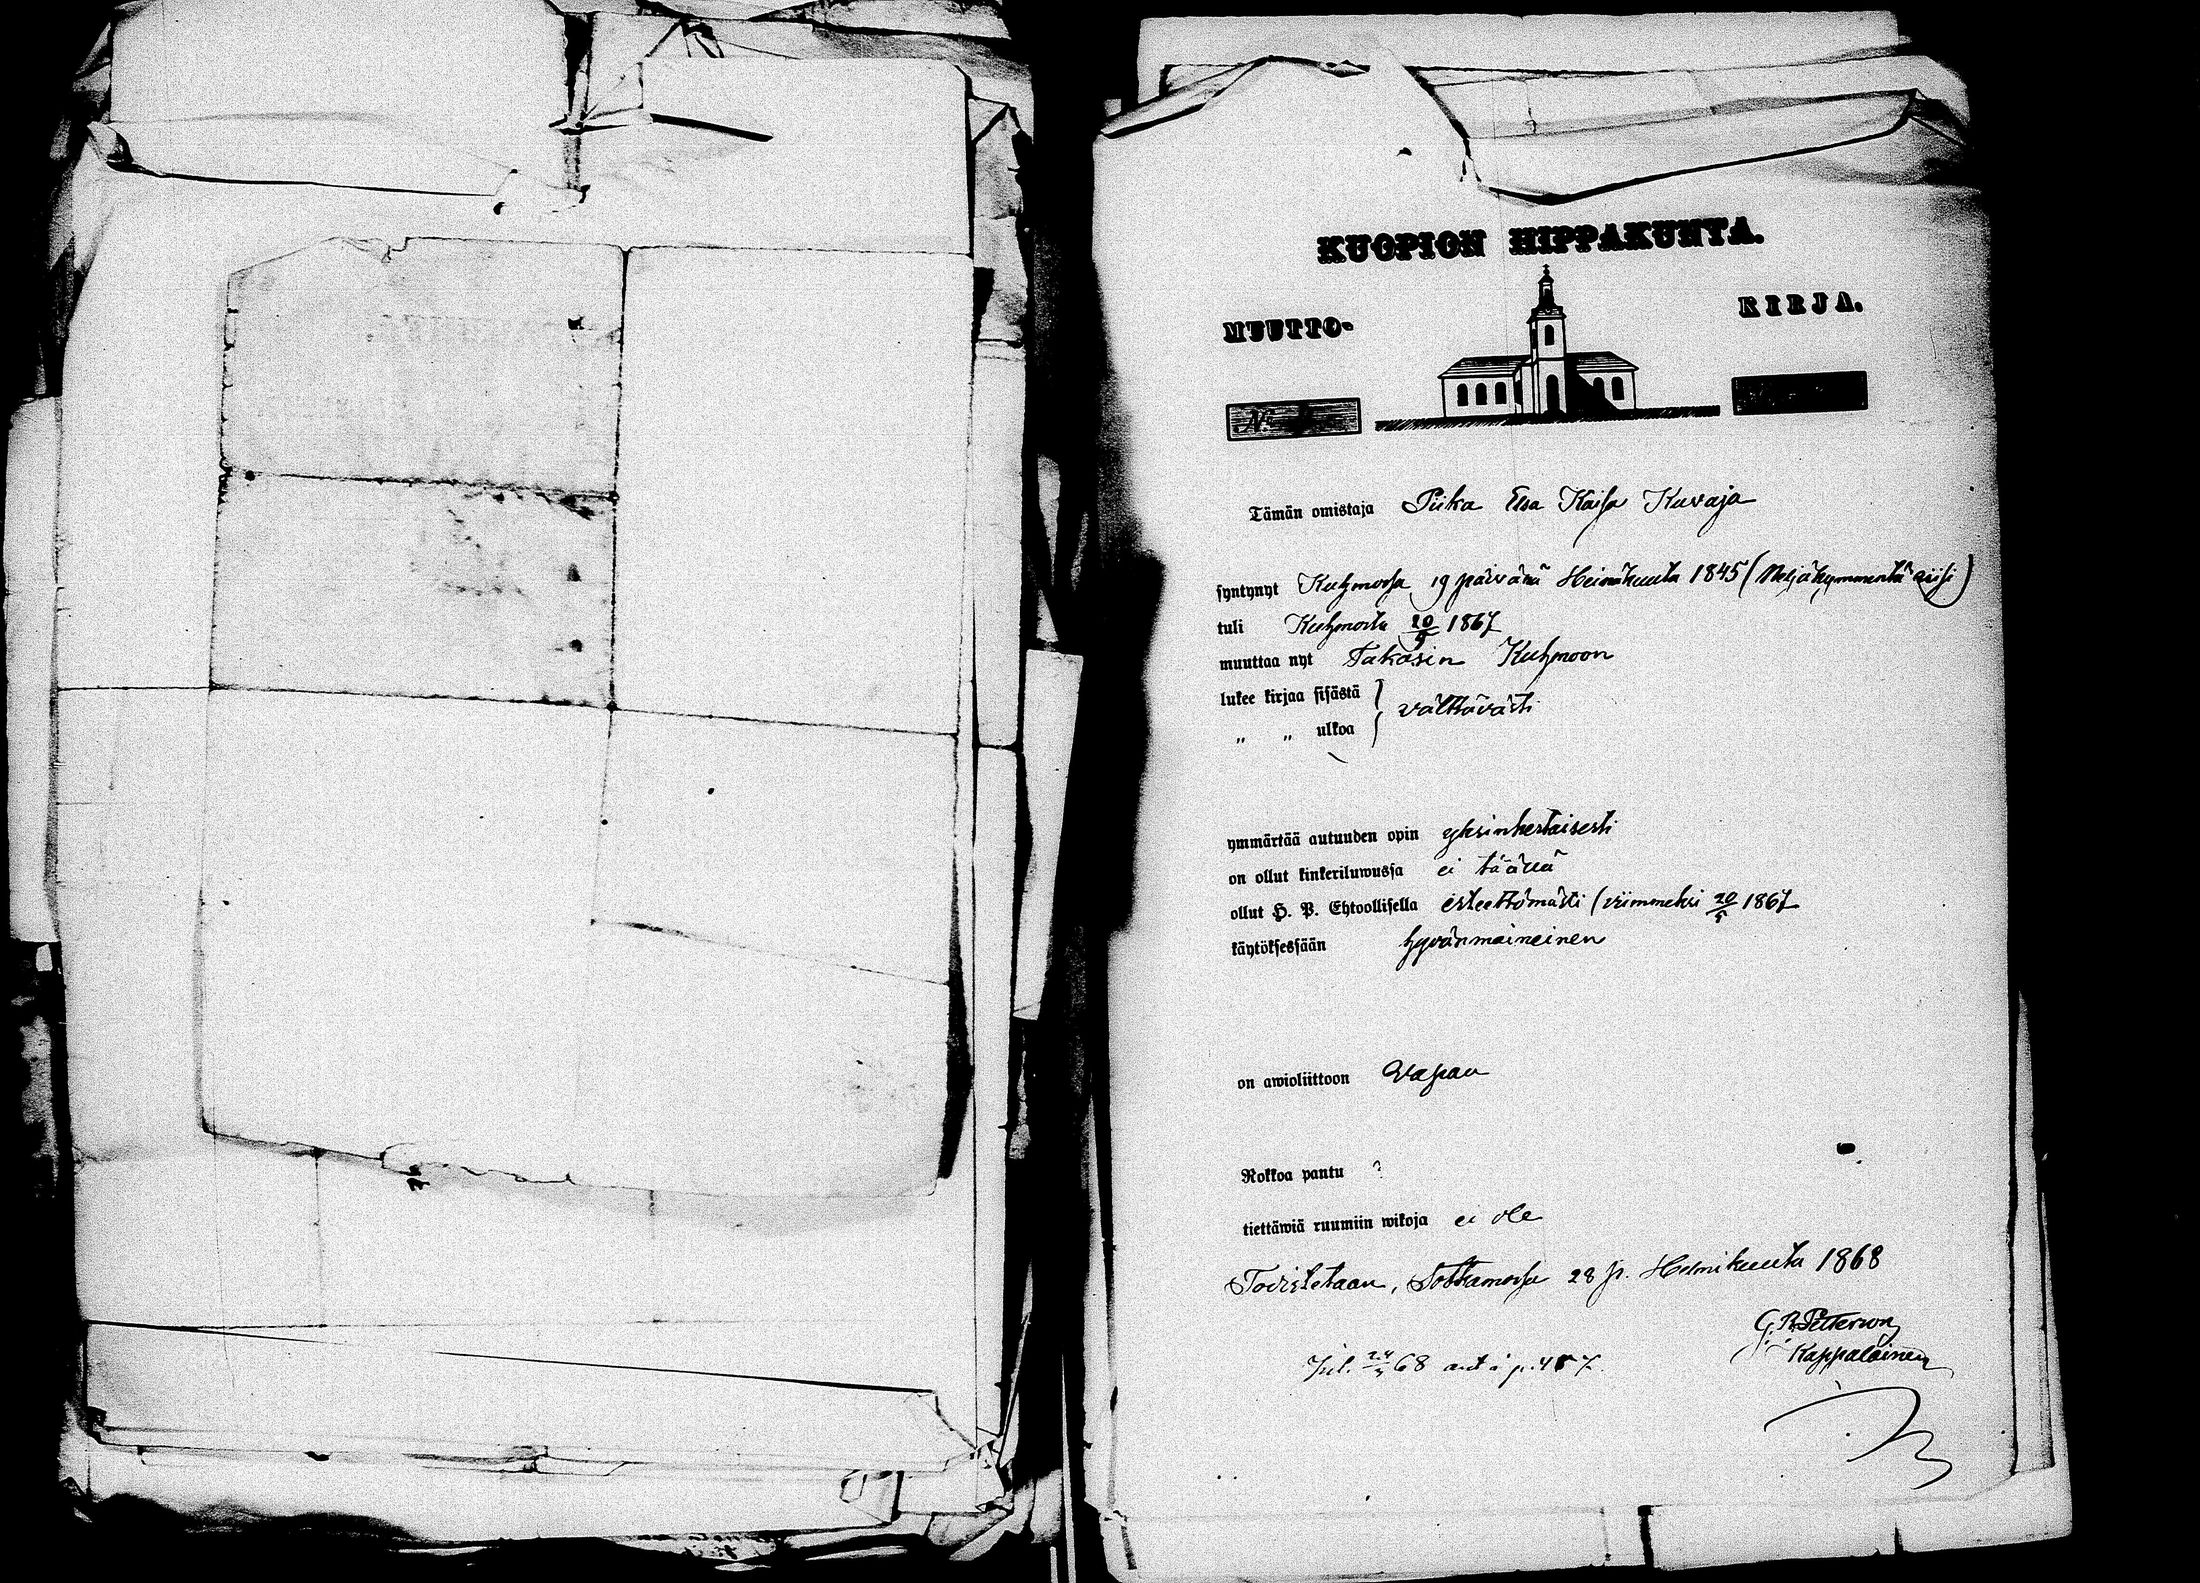 KUOPION HIPPAKUNTA.
MUUTTO- KIRJA.
N:
Tämän omistaja Piika Elsa Kaisa Kuvaja
syntynyt Kuhmossa 19 päivänä Heinäkuuta 1845 (Neljäkymmentä viisi)
tuli Kuhmosta 20/5 1867
muuttaa nyt Takasin Kuhmoon
lukee kirjaa sisästä } välttävästi
„ „ ulkoa
ymmärtää autuuden opin yksinkertaisesti
on ollut kinkeriluwussa ei täällä
ollut H. P. Ehtoollisella esteettömästi (viimmeksi 20/5 1867
käytöksessään hyvänmaineinen
on awioliittoon Vapaa
Rokkoa pantu ?
tiettäwiä ruumiin wikoja ei ole
Todistetaan, Sotkamossa 28 p. Helmikuuta 1868
G. R. Petterson
Kappalainen
68 ant. i p. 457.